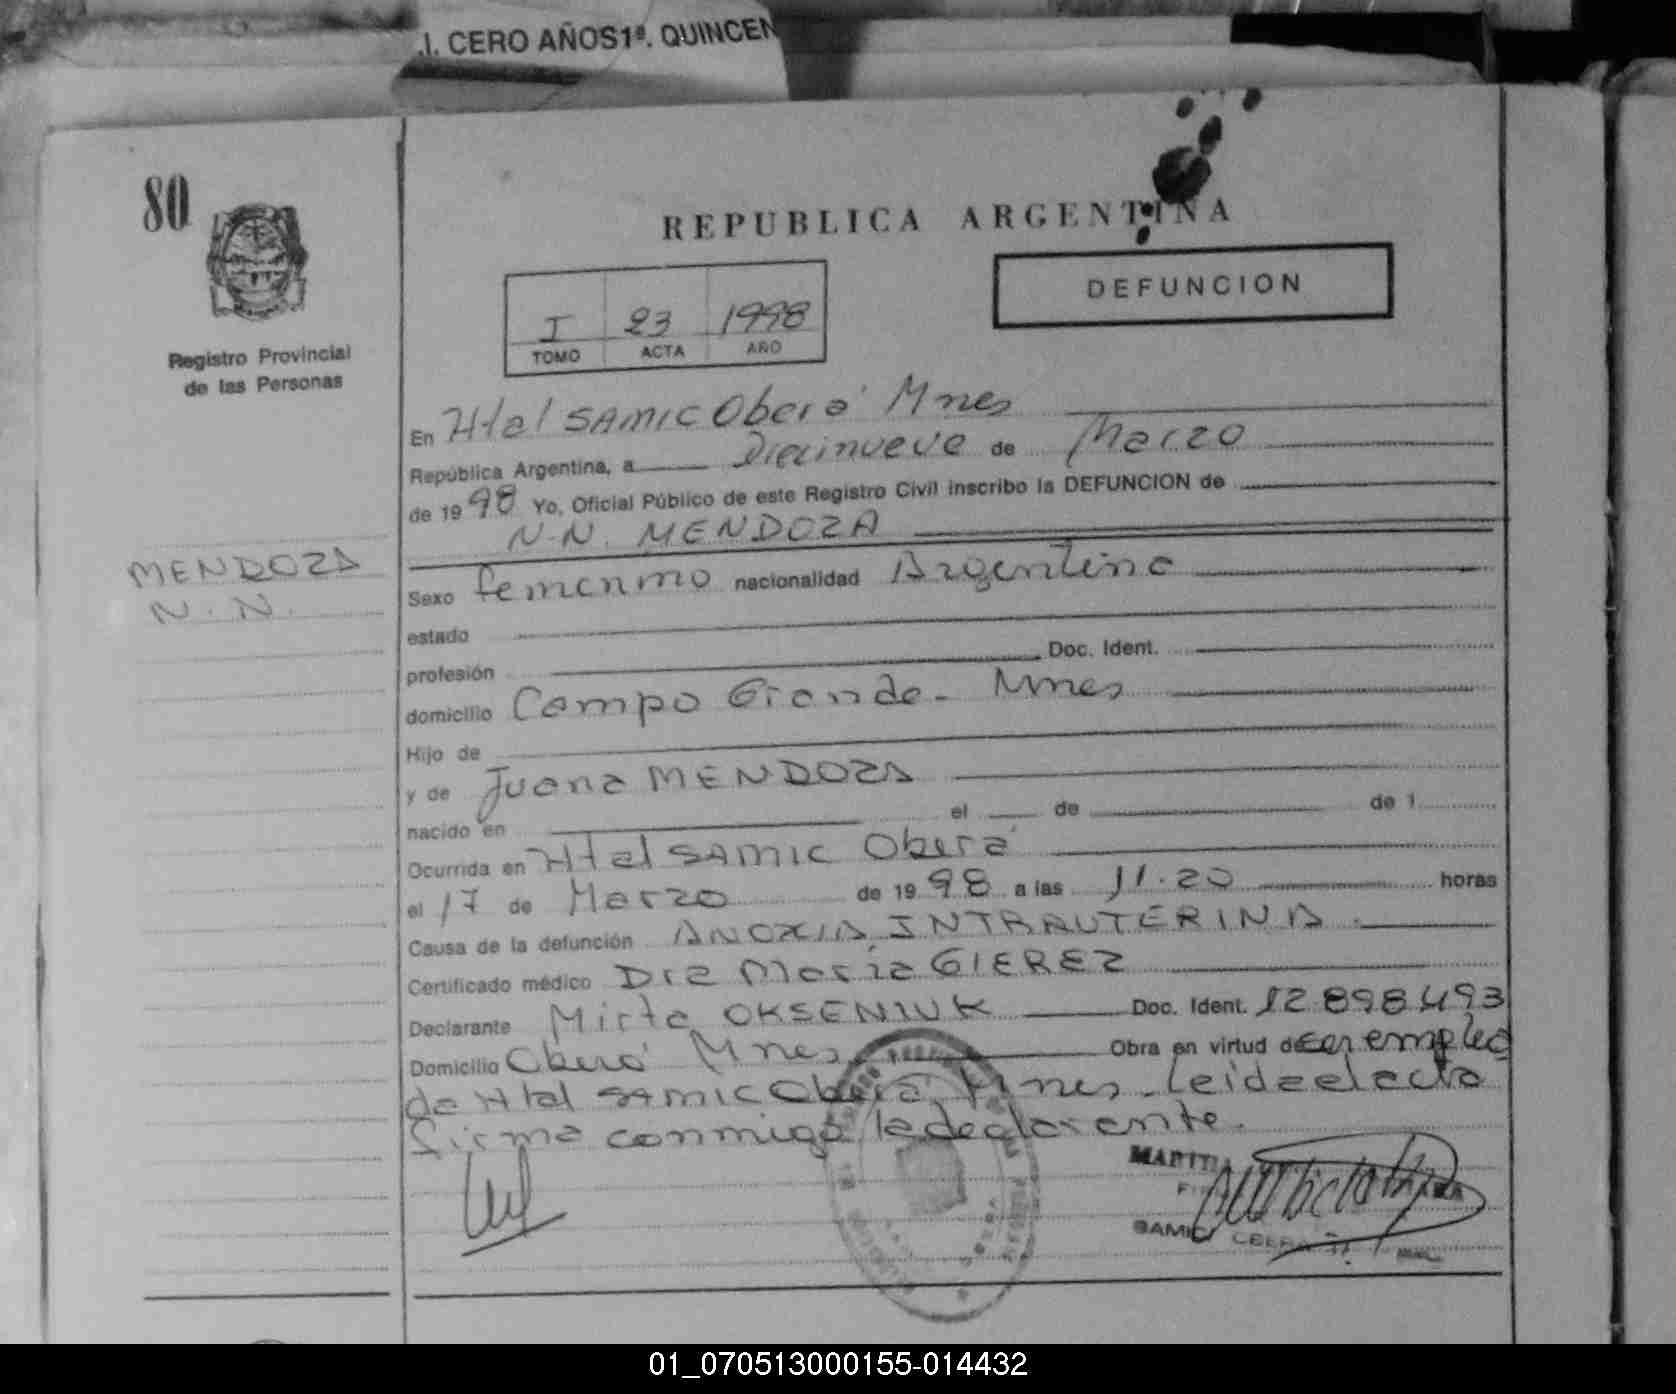 .I. CERO AÑOS 1ª. QUINCEN
80
REPUBLICA ARGENTINA
DEFUNCION
I 23 1998
TOMO ACTA AÑO
Registro Provincial
de las Personas
En Htal SAMIC Oberá Mnes
República Argentina, a Diecinueve de Marzo
de 1998 Yo, Oficial Público de este Registro Civil inscribo la DEFUNCION de
N.N. MENDOZA
MENDOZA
N.N.
Sexo femenino nacionalidad Argentina
estado
profesión Doc. Ident.
domicilio Campo Grande - Mnes
Hijo de
y de Juana MENDOZA
nacido en el de de 1
Ocurrida en Htal SAMIC Oberá
el 17 de Marzo de 1998 a las 11.20 horas
Causa de la defunción ANOXIA INTRAUTERINA.
Certificado médico Dra María GIEREZ
Declarante Mirta OKSENIUK Doc. Ident. 12.898.493
Domicilio Oberá Mnes Obra en virtud de ser emplea
da Htal SAMIC Oberá, Mnes. Leida el acta
firma conmigo la declarante.
SAMIC
01_070513000155-014432